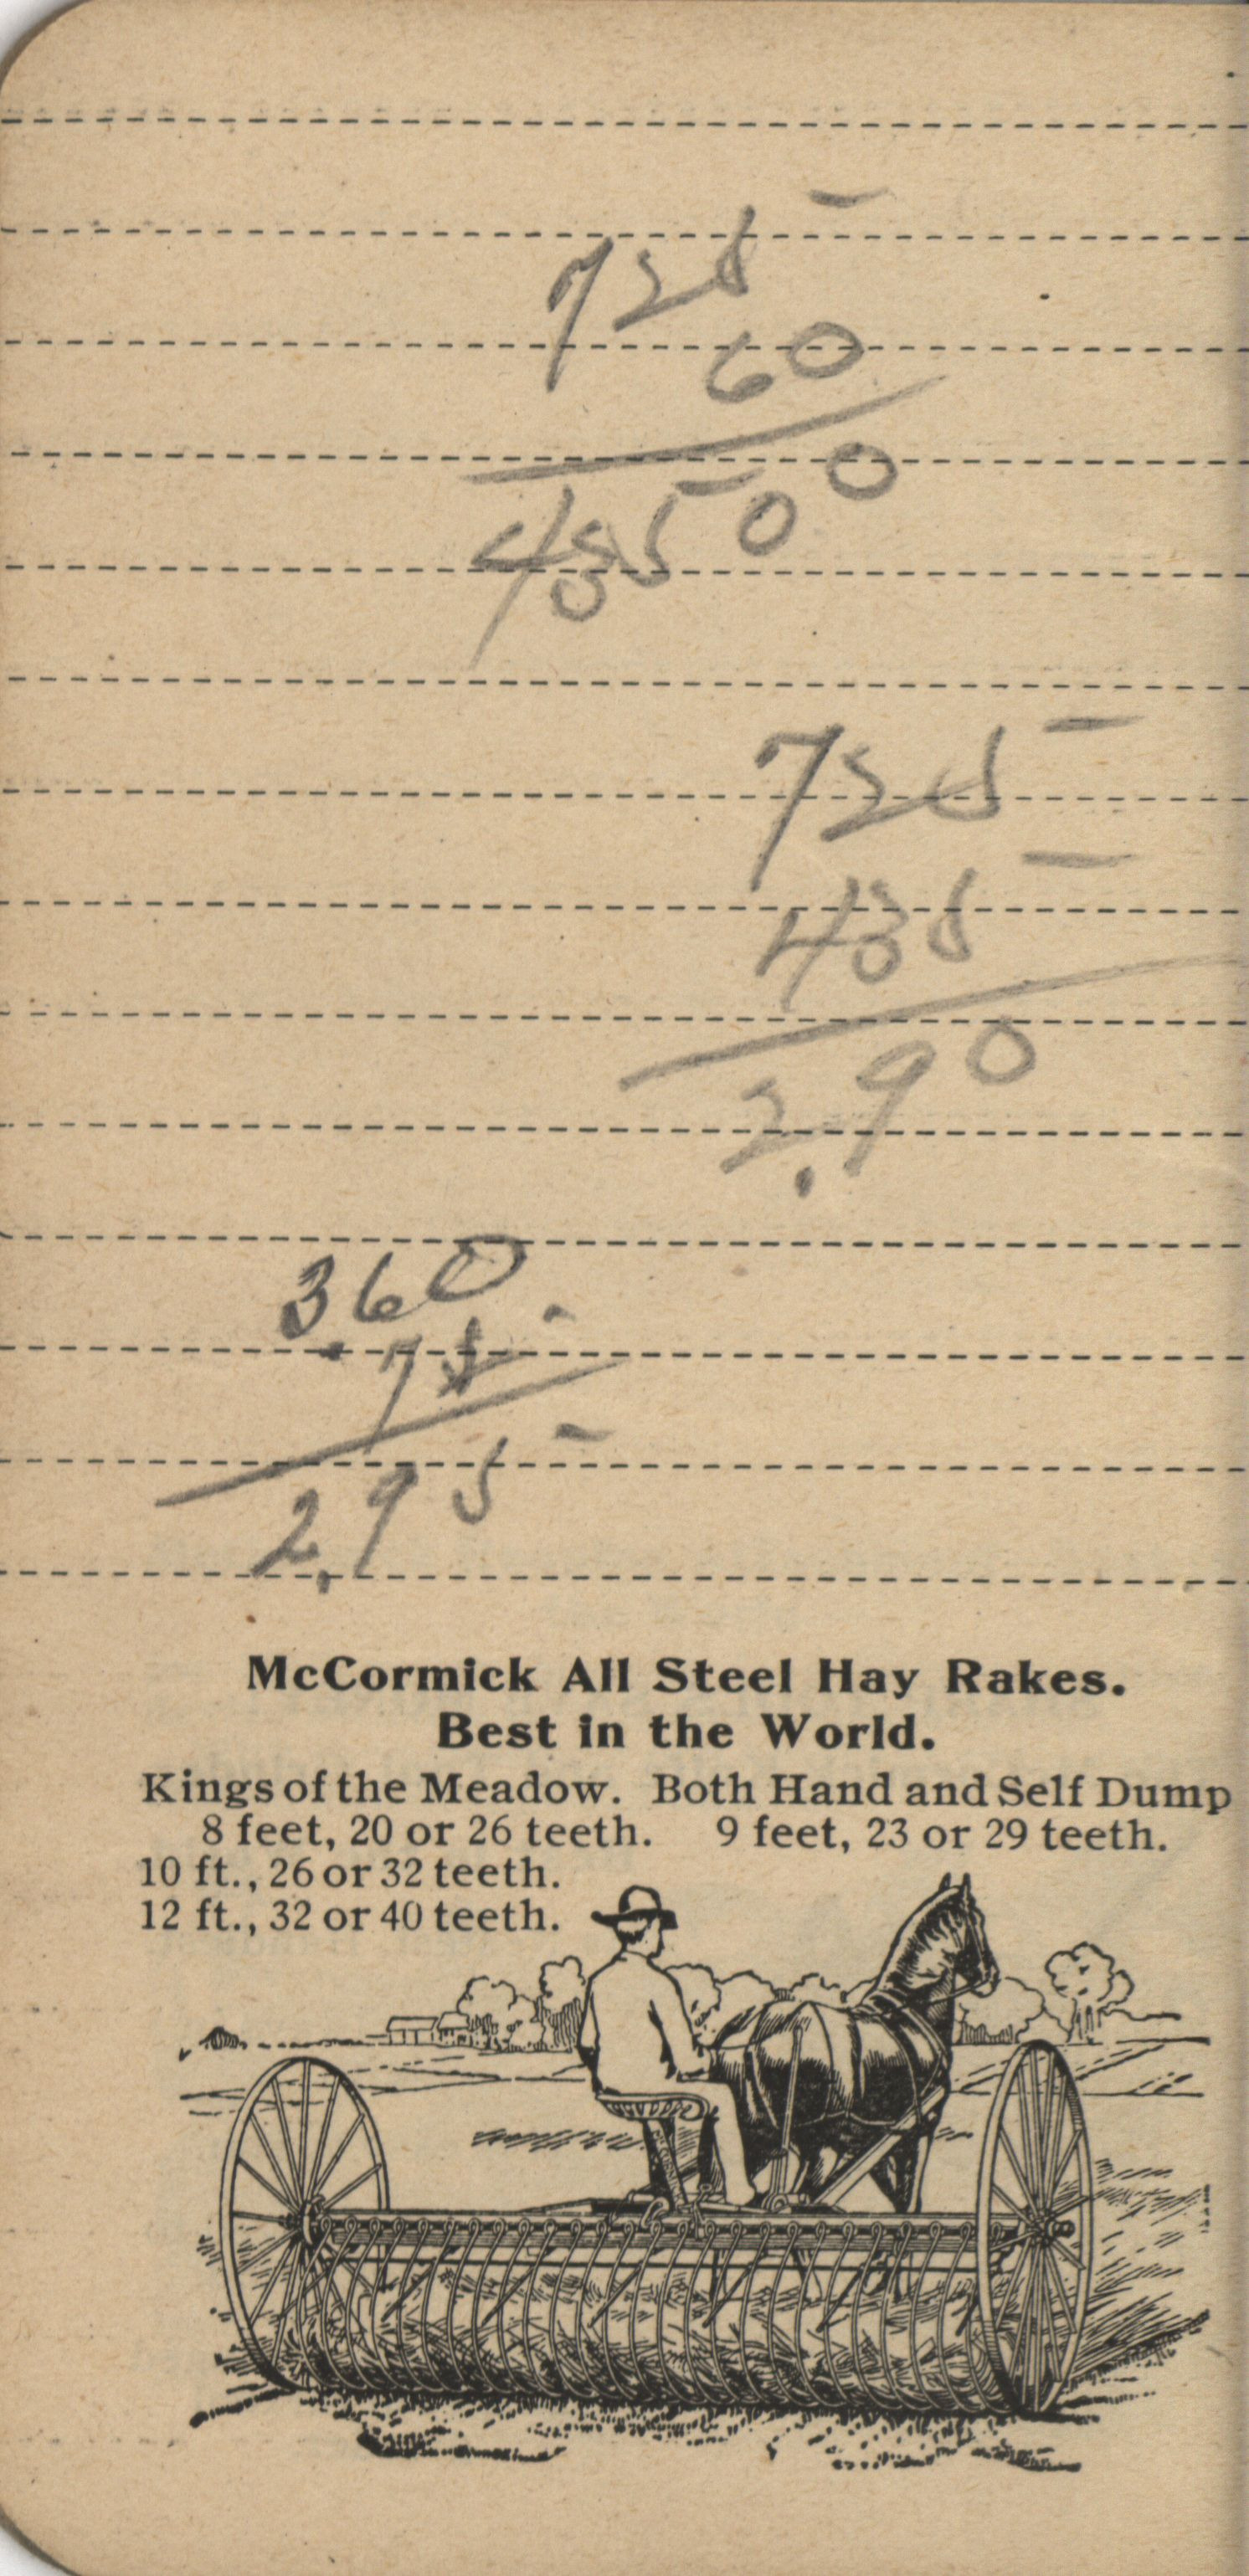 725
60
43500
725
435
2.90
3.60
75
2.95
McCormick All Steel Hay Rakes.
Best in the World.
Kings of the Meadow. Both Hand and Self Dump
8 feet, 20 or 26 teeth. 9 feet, 23 or 29 teeth.
10 ft., 26 or 32 teeth.
12 ft., 32 or 40 teeth.